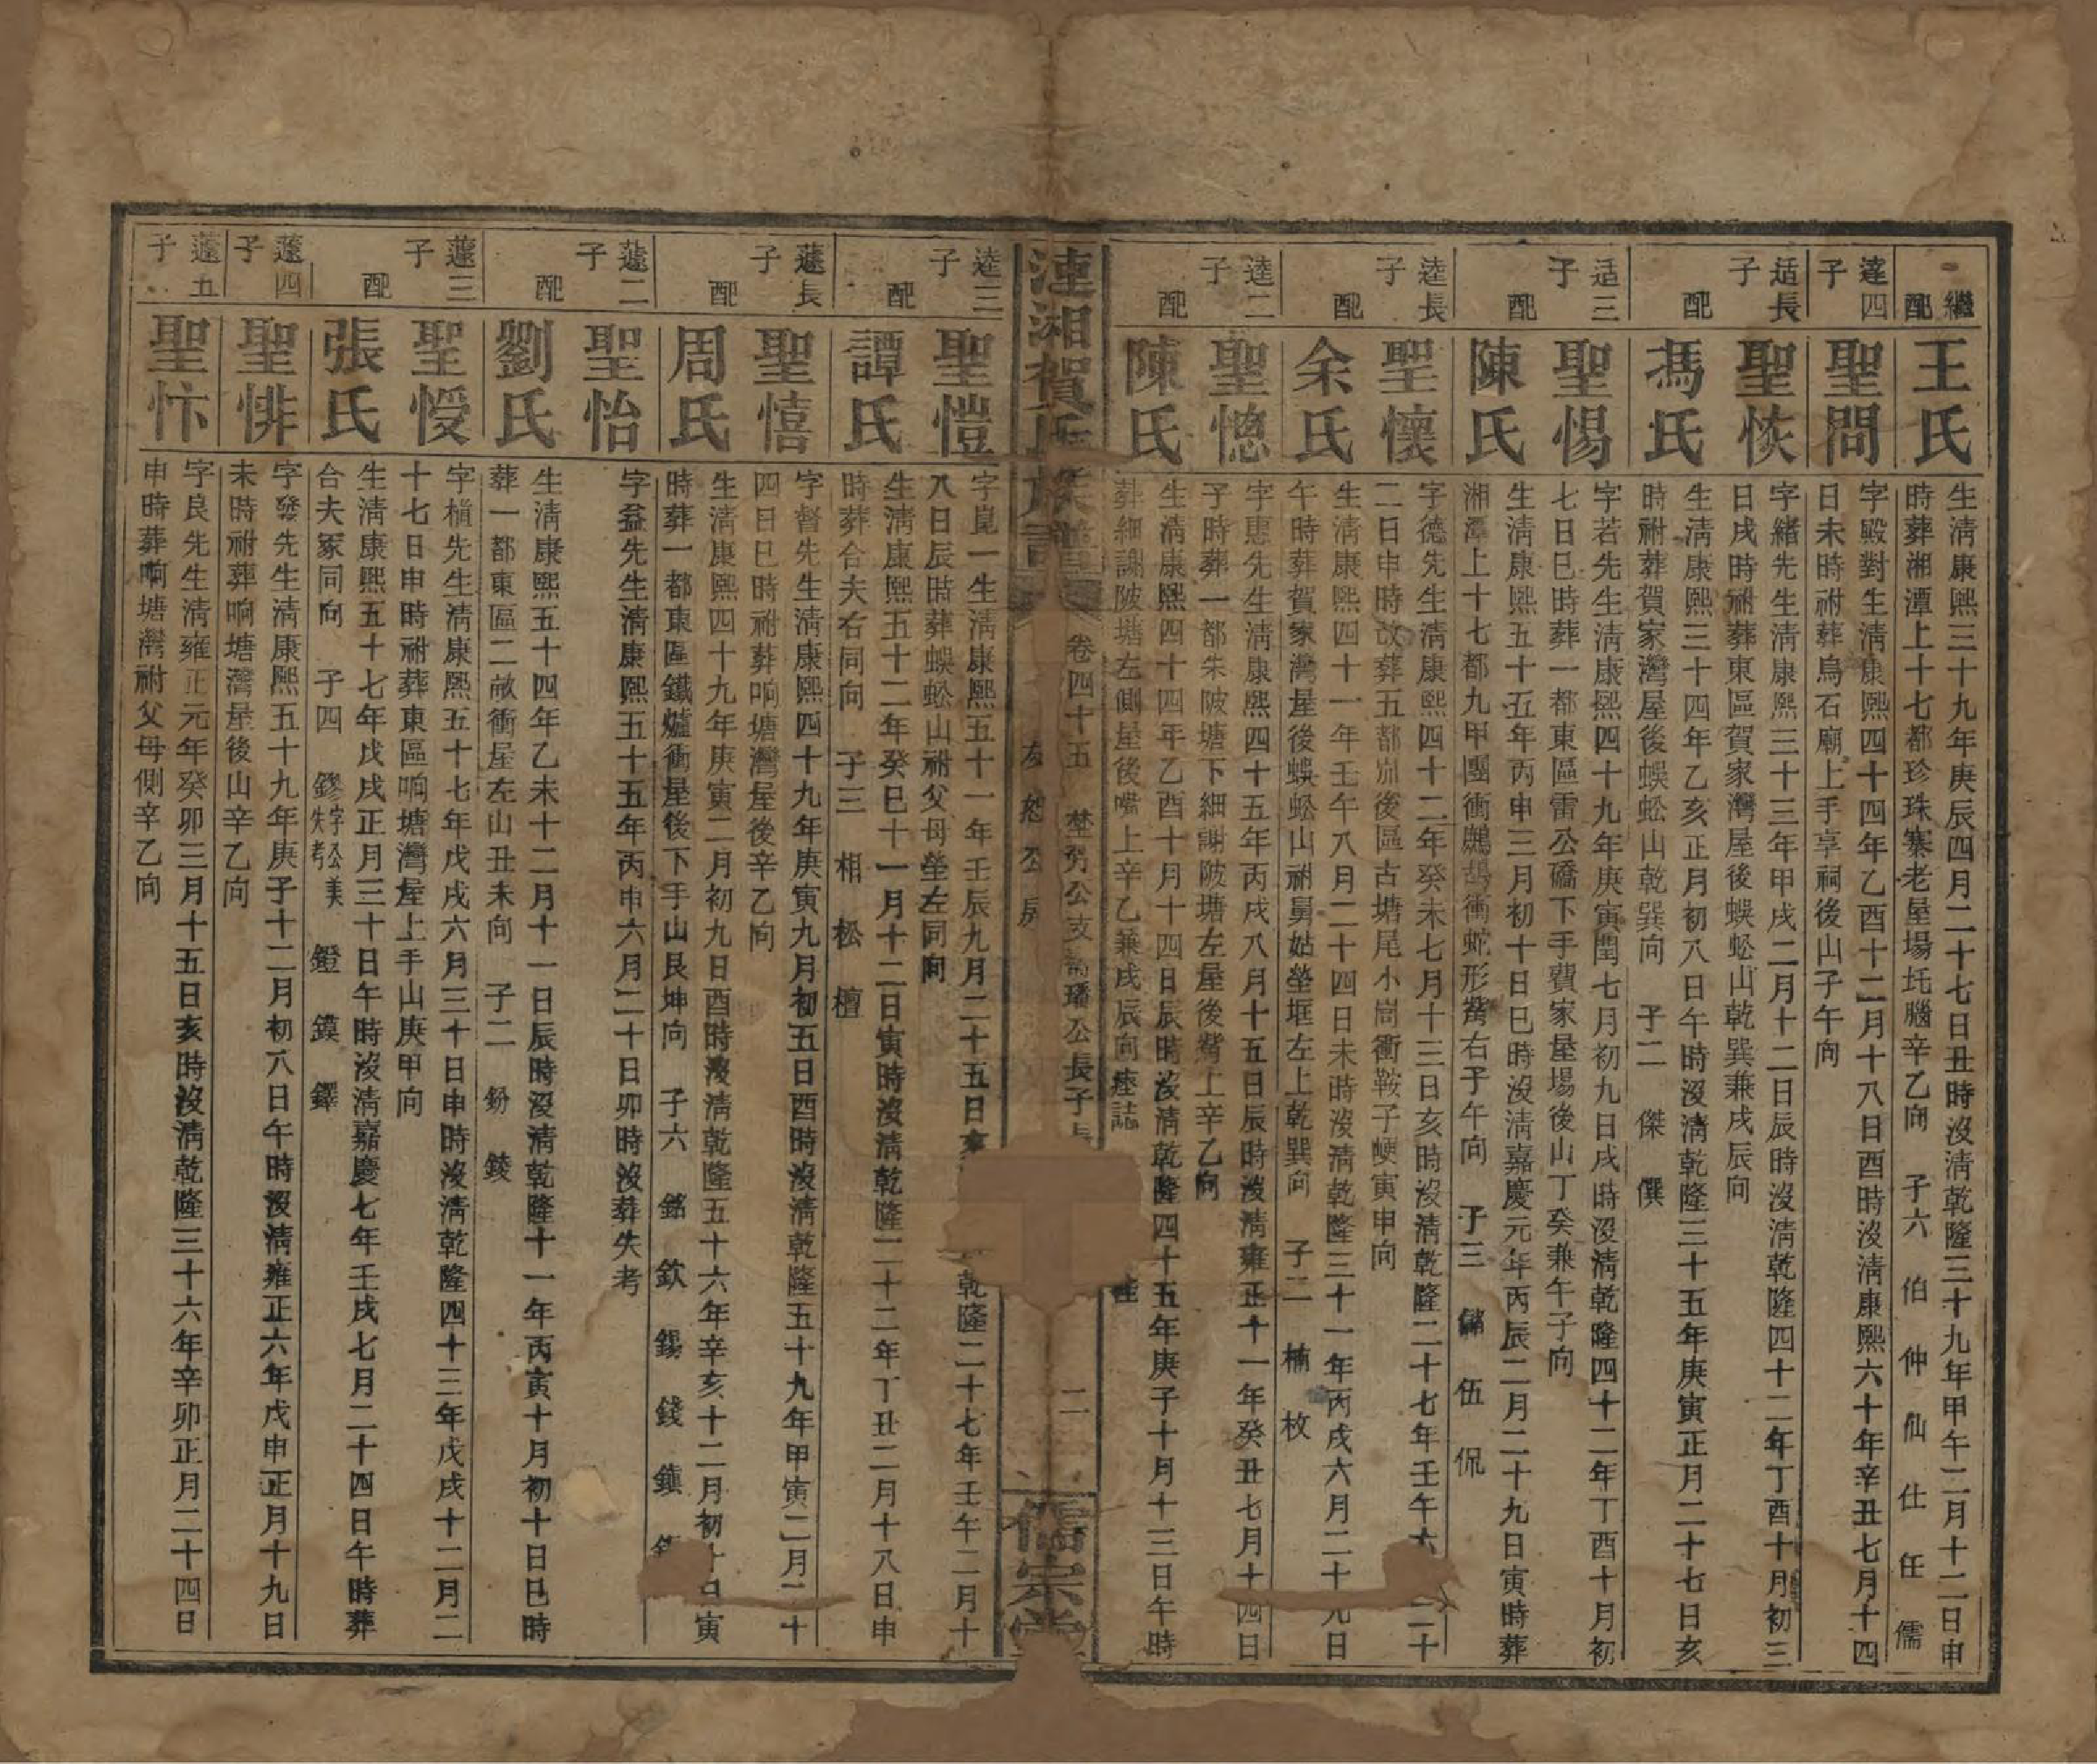 繼配
王氏
生淸康熙三十九年庚辰四月二十七日丑時沒淸乾隆三十九年甲午二月十二日申
時葬湘潭上十七都珍珠寨老屋場坉腦辛乙向 子六 伯 仲 仙 仕 任 儒
逵四子
聖問
字毆對生淸康熙四十四年乙酉十二月十八日酉時沒淸康熙六十年辛丑七月十四
日未時祔葬烏石廟上手享祠後山子午向
适長子
聖恢
字緒先生淸康熙三十三年甲戌二月十二日辰時沒淸乾隆四十二年丁酉十月初三
日戌時祔葬東區賀家灣屋後蜈蚣山乾巽兼戌辰向
配
馮氏
生淸康熙三十四年乙亥正月初八日午時沒淸乾隆三十五年庚寅正月二十七日亥
時祔葬賀家灣屋後蜈蚣山乾巽向 子二 傑 僎
适三子
聖惕
字若先生淸康熙四十九年庚寅閏七月初九日戌時沒淸乾隆四十二年丁酉十月初
七日巳時葬一都東區雷公礄下手費家屋場後山丁癸兼午子向
配
陳氏
生淸康熙五十五年丙申三月初十日巳時沒淸嘉慶元年丙辰二月二十九日寅時葬
湘潭上十七都九甲團衝鷓鴣衝蛇形觜右子午向 子三 伍 侃
逵長子
聖懷
字德先生淸康熙四十二年癸未七月十三日亥時沒淸乾隆二十七年壬午六 二十
二日申時改葬五都 後區古塘尾小崗衝鞍子埂寅申向
配
余氏
生淸康熙四十一年壬午八月二十四日未時沒淸乾隆三十一年丙戌六月二十九日
午時葬賀家灣屋後蜈蚣山祔舅姑塋堀左上乾巽向 子二 楠 枚
逵二子
聖憁
字惠先生淸康熙四十五年丙戌八月十五日辰時沒淸雍正十一年癸丑七月十四日
子時葬一都朱陂塘下細謝陂塘左屋後觜上辛乙向
配
陳氏
生淸康熙四十四年乙酉十月十四日辰時沒淸乾隆四十五年庚子十月十三日午時
葬細謝陂塘左側屋後嘴上辛乙兼戌辰向 誌
漣湘賀氏族譜
卷四十五 公支 璠公長子
友恕公房
二
儒宗堂
逵三子
聖愷
字崑一生淸康熙五十一年壬辰九月二十五日亥 乾隆二十七年壬午二月十
八日辰時葬蜈蚣山祔父母塋左同向
配
譚氏
生淸康熙五十二年癸巳十一月十二日寅時沒淸乾隆二十二年丁丑二月十八日申
時葬合夫右同向 子三 相 松 檀
蘧長子
聖憘
字督先生淸康熙四十九年庚寅九月初五日酉時沒淸乾隆五十九年甲寅二月二十
四日巳時祔葬响塘灣屋後辛乙向
配
周氏
生淸康熙四十九年庚寅二月初九日酉時沒淸乾隆五十六年辛亥十二月初十日寅
時葬一都東區鐵爐衝屋後下手山艮坤向 子六 銘 欽 錫 錢 鎭
蘧二子
聖怡
字益先生淸康熙五十五年丙申六月二十日卯時沒葬失考
配
劉氏
生淸康熙五十四年乙未十二月十一日辰時沒淸乾隆十一年丙寅十月初十日巳時
葬一都東區二畝衝屋左山丑未向 子二 鈖 錂
蘧三子
聖慢
字槓先生淸康熙五十七年戊戌六月三十日申時沒淸乾隆四十三年戊戌十二月二
十七日申時祔葬東區响塘灣屋上手山庚甲向
配
張氏
生淸康熙五十七年戊戌正月三十日午時沒淸嘉慶七年壬戌七月二十四日午時葬
合夫冢同向 子四 鏐字公美失考 鐙 鏌 鐸
蘧四子
聖悱
字發先生淸康熙五十九年庚子十二月初八日午時沒淸雍正六年戊申正月十九日
未時祔葬响塘灣屋後山辛乙向
蘧五子
聖忭
字良先生淸雍正元年癸卯三月十五日亥時沒淸乾隆三十六年辛卯正月二十四日
申時葬响塘灣祔父母側辛乙向